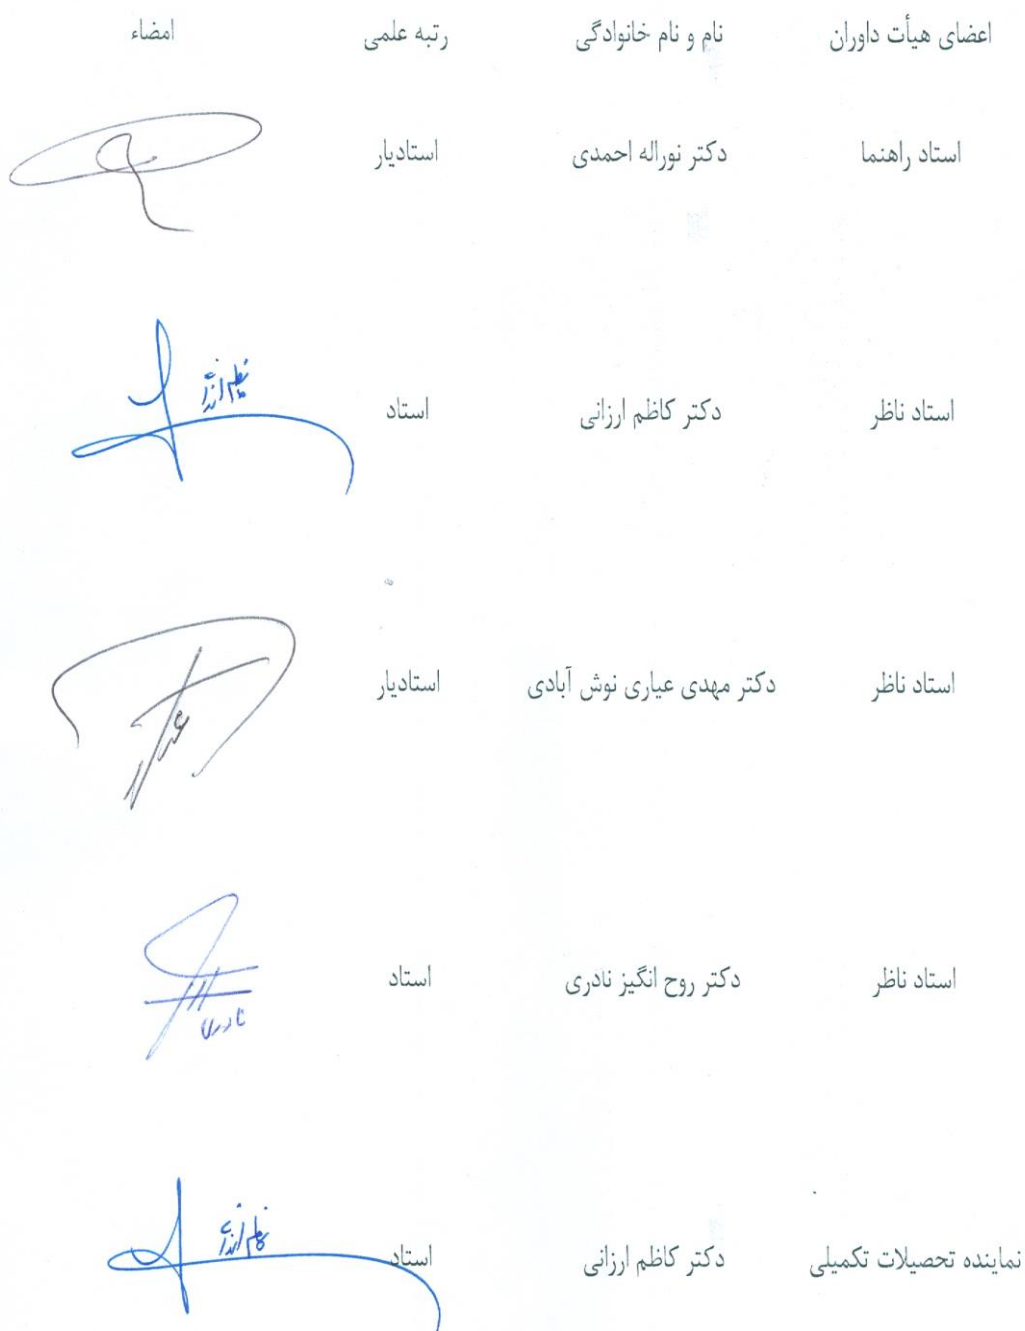 اعضای هیأت داوران نام و نام خانوادگی رتبه علمی امضاء
استاد راهنما دکتر نوراله احمدی استادیار
استاد ناظر دکتر کاظم ارزانی استاد
کاظم ارزانی
استاد ناظر دکتر مهدی عیاری نوش آبادی استادیار
استاد ناظر دکتر روح انگیز نادری استاد
نادری
نماینده تحصیلات تکمیلی دکتر کاظم ارزانی استاد
کاظم ارزانی